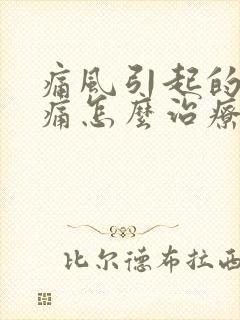 痛風引起的
痛怎麼治療
比尔德布拉西